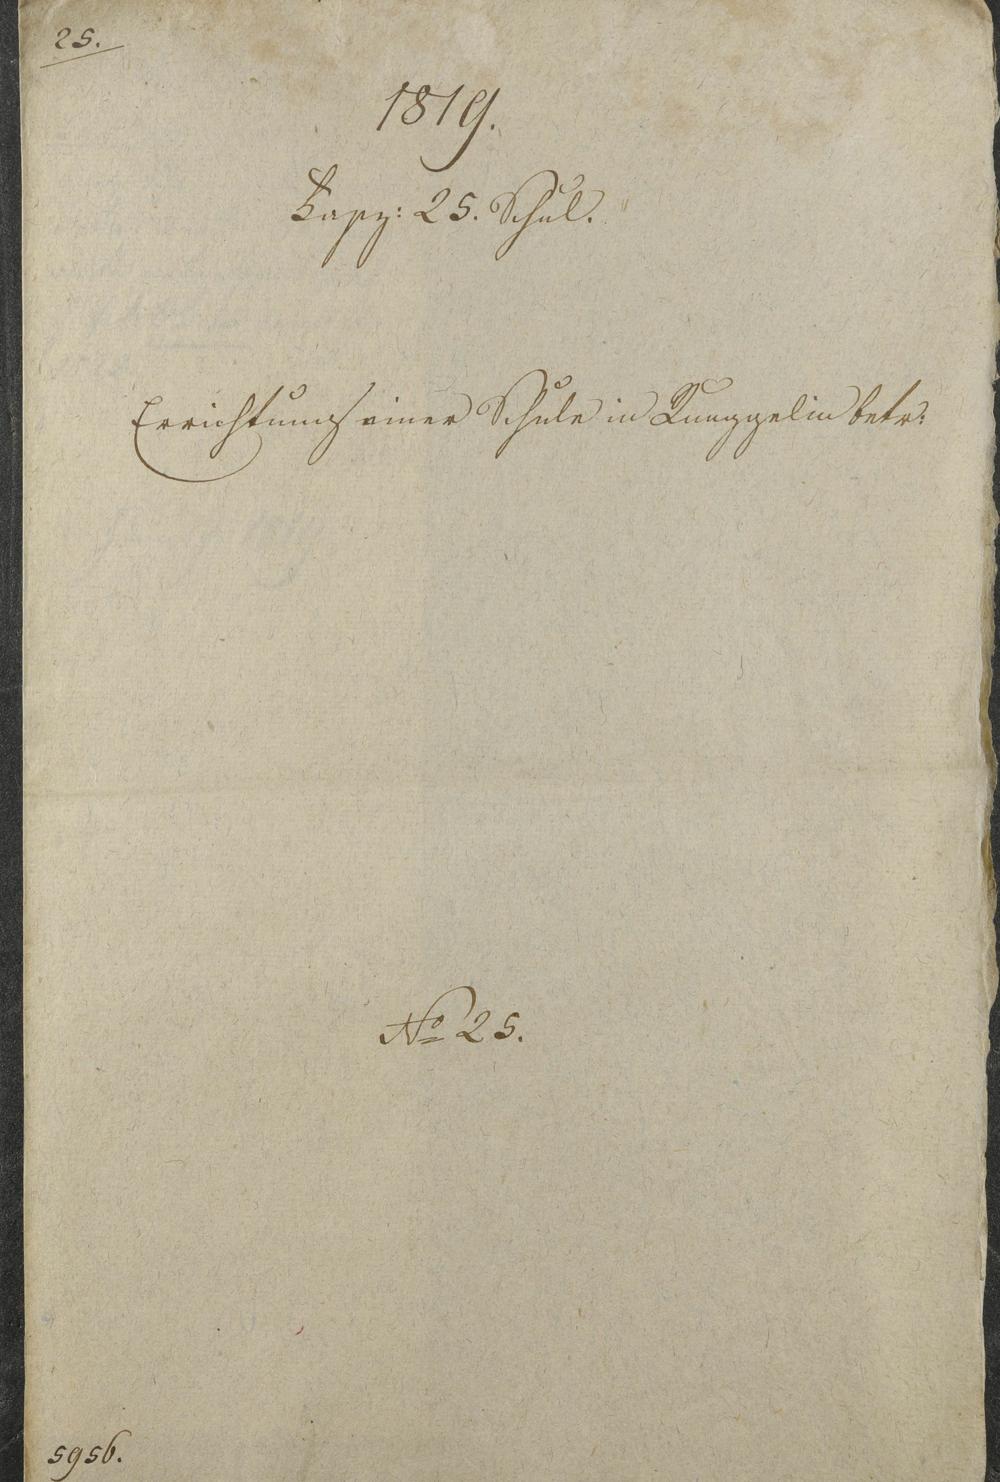 25.
1819.
25. Schul.
Errichtung einer Schule in Runggelin betr:
No 25.
5956.